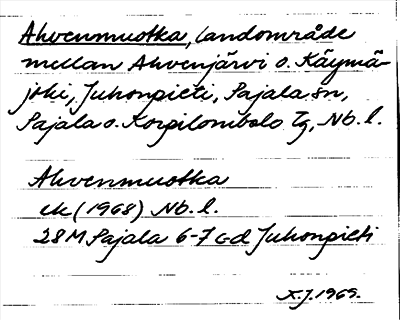 Ahvenmuotka, landområde
mellan Ahvenjärvi o. Käymä-
joki, Juhonpieti, Pajala sn,
Pajala o. Korpilombolo Tg, Nb. l.
Ahvenmuotka
ek (1968) Nb. l.
28M Pajala 6-7 c-d Juhonpieti
X.J. 1969.